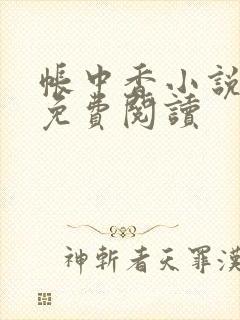 帳中香小說
免費閱讀
神斬者天罪漢